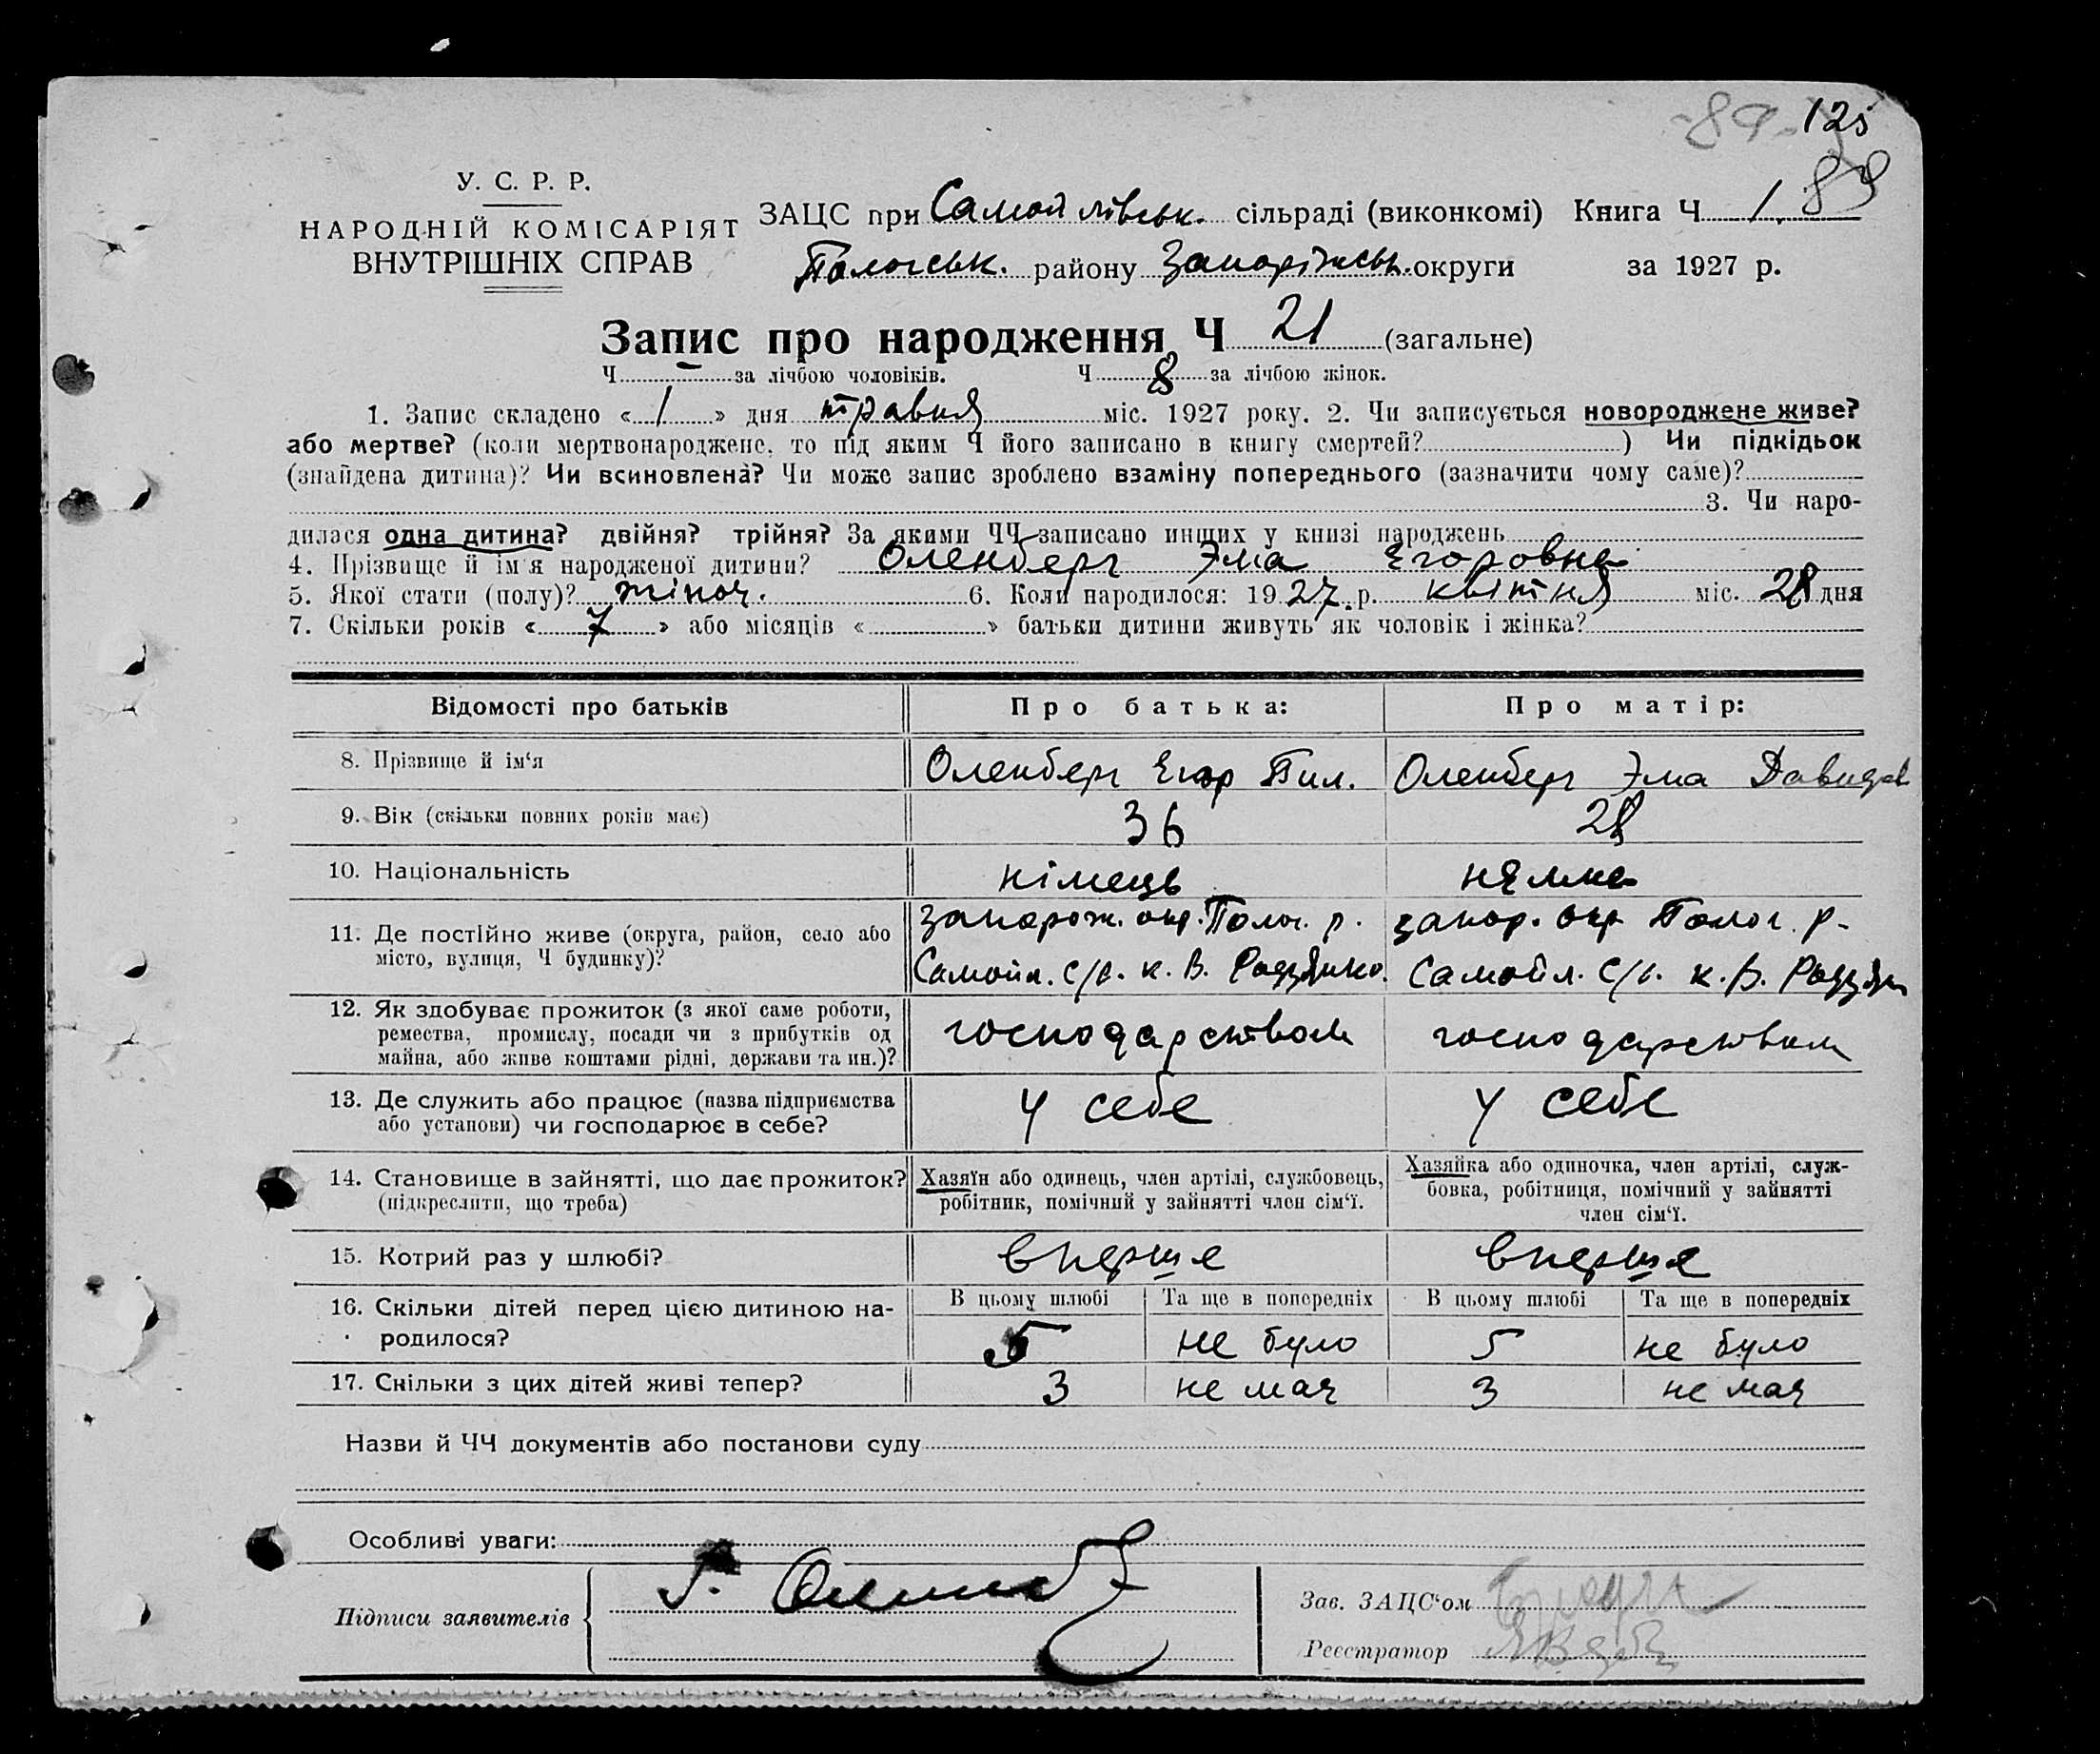 -89- 125
89
У. С. Р. Р.
НАРОДНІЙ КОМІСАРІЯТ
ВНУТРІШНІХ СПРАВ
ЗАЦС при Самойлівськ. сільраді (виконкомі) Книга Ч 1.
Пологськ. району Запоріжськ. округи за 1927 р.
Запис про народження Ч 21 (загальне)
Ч — за лічбою чоловіків. Ч 8 за лічбою жінок.
1. Запис складено « 1 » дня травня міс. 1927 року. 2. Чи записується новороджене живе?
або мертве? (коли мертвонароджене, то під яким Ч його записано в книгу смертей? ) Чи підкідьок
(знайдена дитина)? Чи всиновлена? Чи може запис зроблено взаміну попереднього (зазначити чому саме)?
3. Чи наро-
дилася одна дитина? двійня? трійня? За якими ЧЧ записано инших у книзі народжень
4. Прізвище й ім'я народженої дитини? Оленберг Эма Егоровна
5. Якої стати (полу)? жіноч. 6. Коли народилося: 1927. р. квітня міс. 28 дня
7. Скільки років « 7 » або місяців « » батьки дитини живуть як чоловік і жінка?
Відомості про батьків Про батька: Про матір:
8. Прізвище й ім'я Оленберг Егор Пил. Оленберг Эма Давидов
9. Вік (скільки повних років має) 36 28
10. Національність німець нямка
11. Де постійно живе (округа, район, село або запорож. окр. Полог. р. запор. окр Полог. р-
місто, вулиця, Ч будинку)? Самойл. с/с. к. В. Самойл. с/с. к. В.
12. Як здобуває прожиток (з якої саме роботи,
ремества, промислу, посади чи з прибутків од господарством господарством
майна, або живе коштами рідні, держави та ин.)?
13. Де служить або працює (назва підприємства У себе У себе
або установи) чи господарює в себе?
14. Становище в зайнятті, що дає прожиток? Хазяїн або одинець, член артілі, службовець, Хазяйка або одиночка, член артілі, служ-
(підкреслити, що треба) робітник, помічний у зайнятті член сім'ї. бовка, робітниця, помічний у зайнятті
член сім'ї.
15. Котрий раз у шлюбі? вперше вперше
16. Скільки дітей перед цією дитиною на- В цьому шлюбі Та ще в попередніх В цьому шлюбі Та ще в попередніх
родилося? 5 не було 5 не було
17. Скільки з цих дітей живі тепер? 3 не має 3 не має
Назви й ЧЧ документів або постанови суду
Особливі уваги:
Підписи заявителів
Зав. ЗАЦС'ом
Реєстратор